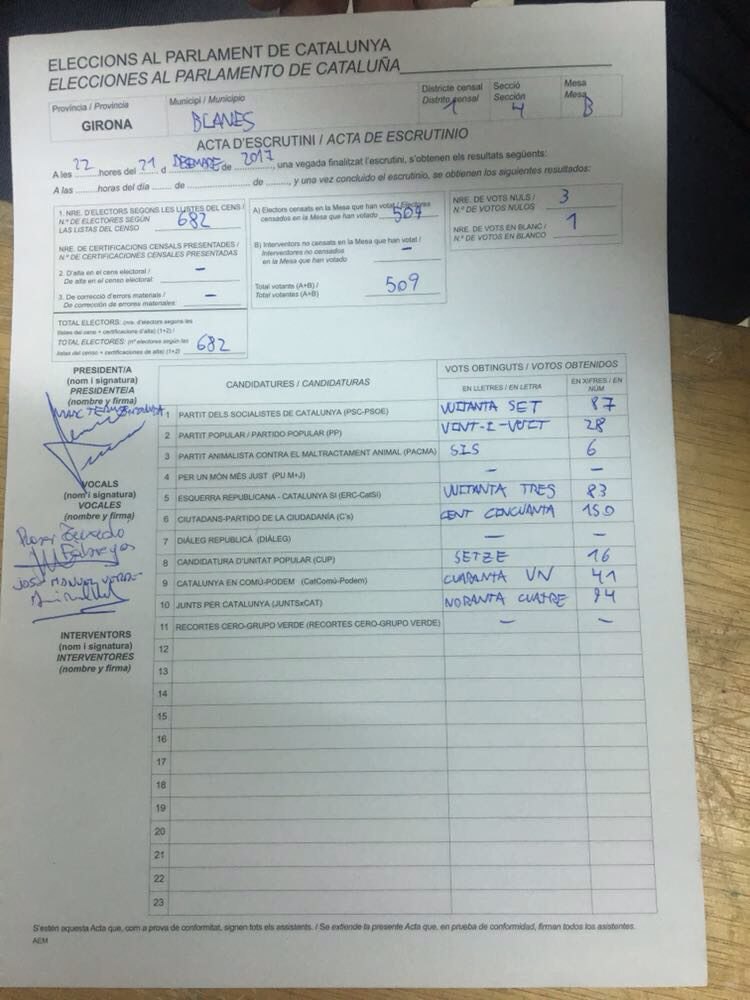 ELECCIONS AL PARLAMENT DE CATALUNYA
ELECCIONES AL PARLAMENTO DE CATALUÑA
Província / Provincia
GIRONA
Municipi / Municipio
BLANES
Districte censal
Distrito censal
1
Secció
Sección
4
Mesa
Mesa
B
ACTA D'ESCRUTINI / ACTA DE ESCRUTINIO
A les 22 hores del 21 d DESEMBRE de 2017, una vegada finalitzat l'escrutini, s'obtenen els resultats següents:
A las ........ horas del día ........ de ........ de ........, y una vez concluido el escrutinio, se obtienen los siguientes resultados:
1. NRE. D'ELECTORS SEGONS LES LLISTES DEL CENS /
N.º DE ELECTORES SEGÚN
LAS LISTAS DEL CENSO 682
NRE. DE CERTIFICACIONS CENSALS PRESENTADES /
N.º DE CERTIFICACIONES CENSALES PRESENTADAS
2. D'alta en el cens electoral /
De alta en el censo electoral: –
3. De correcció d'errors materials /
De corrección de errores materiales: –
TOTAL ELECTORS: (nre. d'electors segons les
llistes del cens + certificacions d'alta) (1+2) /
TOTAL ELECTORES: (nº electores según las
listas del censo + certificaciones de alta) (1+2) 682
A) Electors censats en la Mesa que han votat / Electores
censados en la Mesa que han votado 509
B) Interventors no censats en la Mesa que han votat /
Interventores no censados
en la Mesa que han votado –
Total votants (A+B) /
Total votantes (A+B) 509
NRE. DE VOTS NULS /
N.º DE VOTOS NULOS 3
NRE. DE VOTS EN BLANC /
N.º DE VOTOS EN BLANCO 1
PRESIDENT/A
(nom i signatura)
PRESIDENTE/A
(nombre y firma)
MARC
VOCALS
(nom i signatura)
VOCALES
(nombre y firma)
JOSÉ MANUEL
INTERVENTORS
(nom i signatura)
INTERVENTORES
(nombre y firma)
CANDIDATURES / CANDIDATURAS
VOTS OBTINGUTS / VOTOS OBTENIDOS
EN LLETRES / EN LETRA
EN XIFRES / EN NÚM
1 PARTIT DELS SOCIALISTES DE CATALUNYA (PSC-PSOE) VUITANTA SET 87
2 PARTIT POPULAR / PARTIDO POPULAR (PP) VINT-I-VUIT 28
3 PARTIT ANIMALISTA CONTRA EL MALTRACTAMENT ANIMAL (PACMA) SIS 6
4 PER UN MÓN MÉS JUST (PU M+J) – –
5 ESQUERRA REPUBLICANA - CATALUNYA SÍ (ERC-CatSí) VUITANTA TRES 83
6 CIUTADANS-PARTIDO DE LA CIUDADANÍA (C's) CENT CINCUANTA 150
7 DIÀLEG REPUBLICÀ (DIÀLEG) – –
8 CANDIDATURA D'UNITAT POPULAR (CUP) SETZE 16
9 CATALUNYA EN COMÚ-PODEM (CatComú-Podem) CUARANTA UN 41
10 JUNTS PER CATALUNYA (JUNTSxCAT) NORANTA CUATRE 94
11 RECORTES CERO-GRUPO VERDE (RECORTES CERO-GRUPO VERDE) – –
12
13
14
15
16
17
18
19
20
21
22
23
S'estén aquesta Acta que, com a prova de conformitat, signen tots els assistents. / Se extiende la presente Acta que, en prueba de conformidad, firman todos los asistentes.
AEM